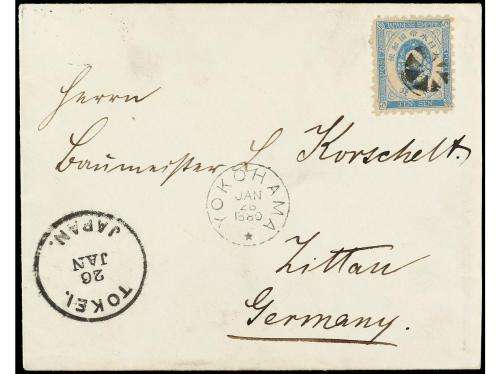 JAPANESE EMPIRE
TEN SEN
Herrn
Baumeister L. Korschelt.
YOKOHAMA
JAN
26
1880
TOKEI.
26
JAN
JAPAN.
Zittau
Germany.